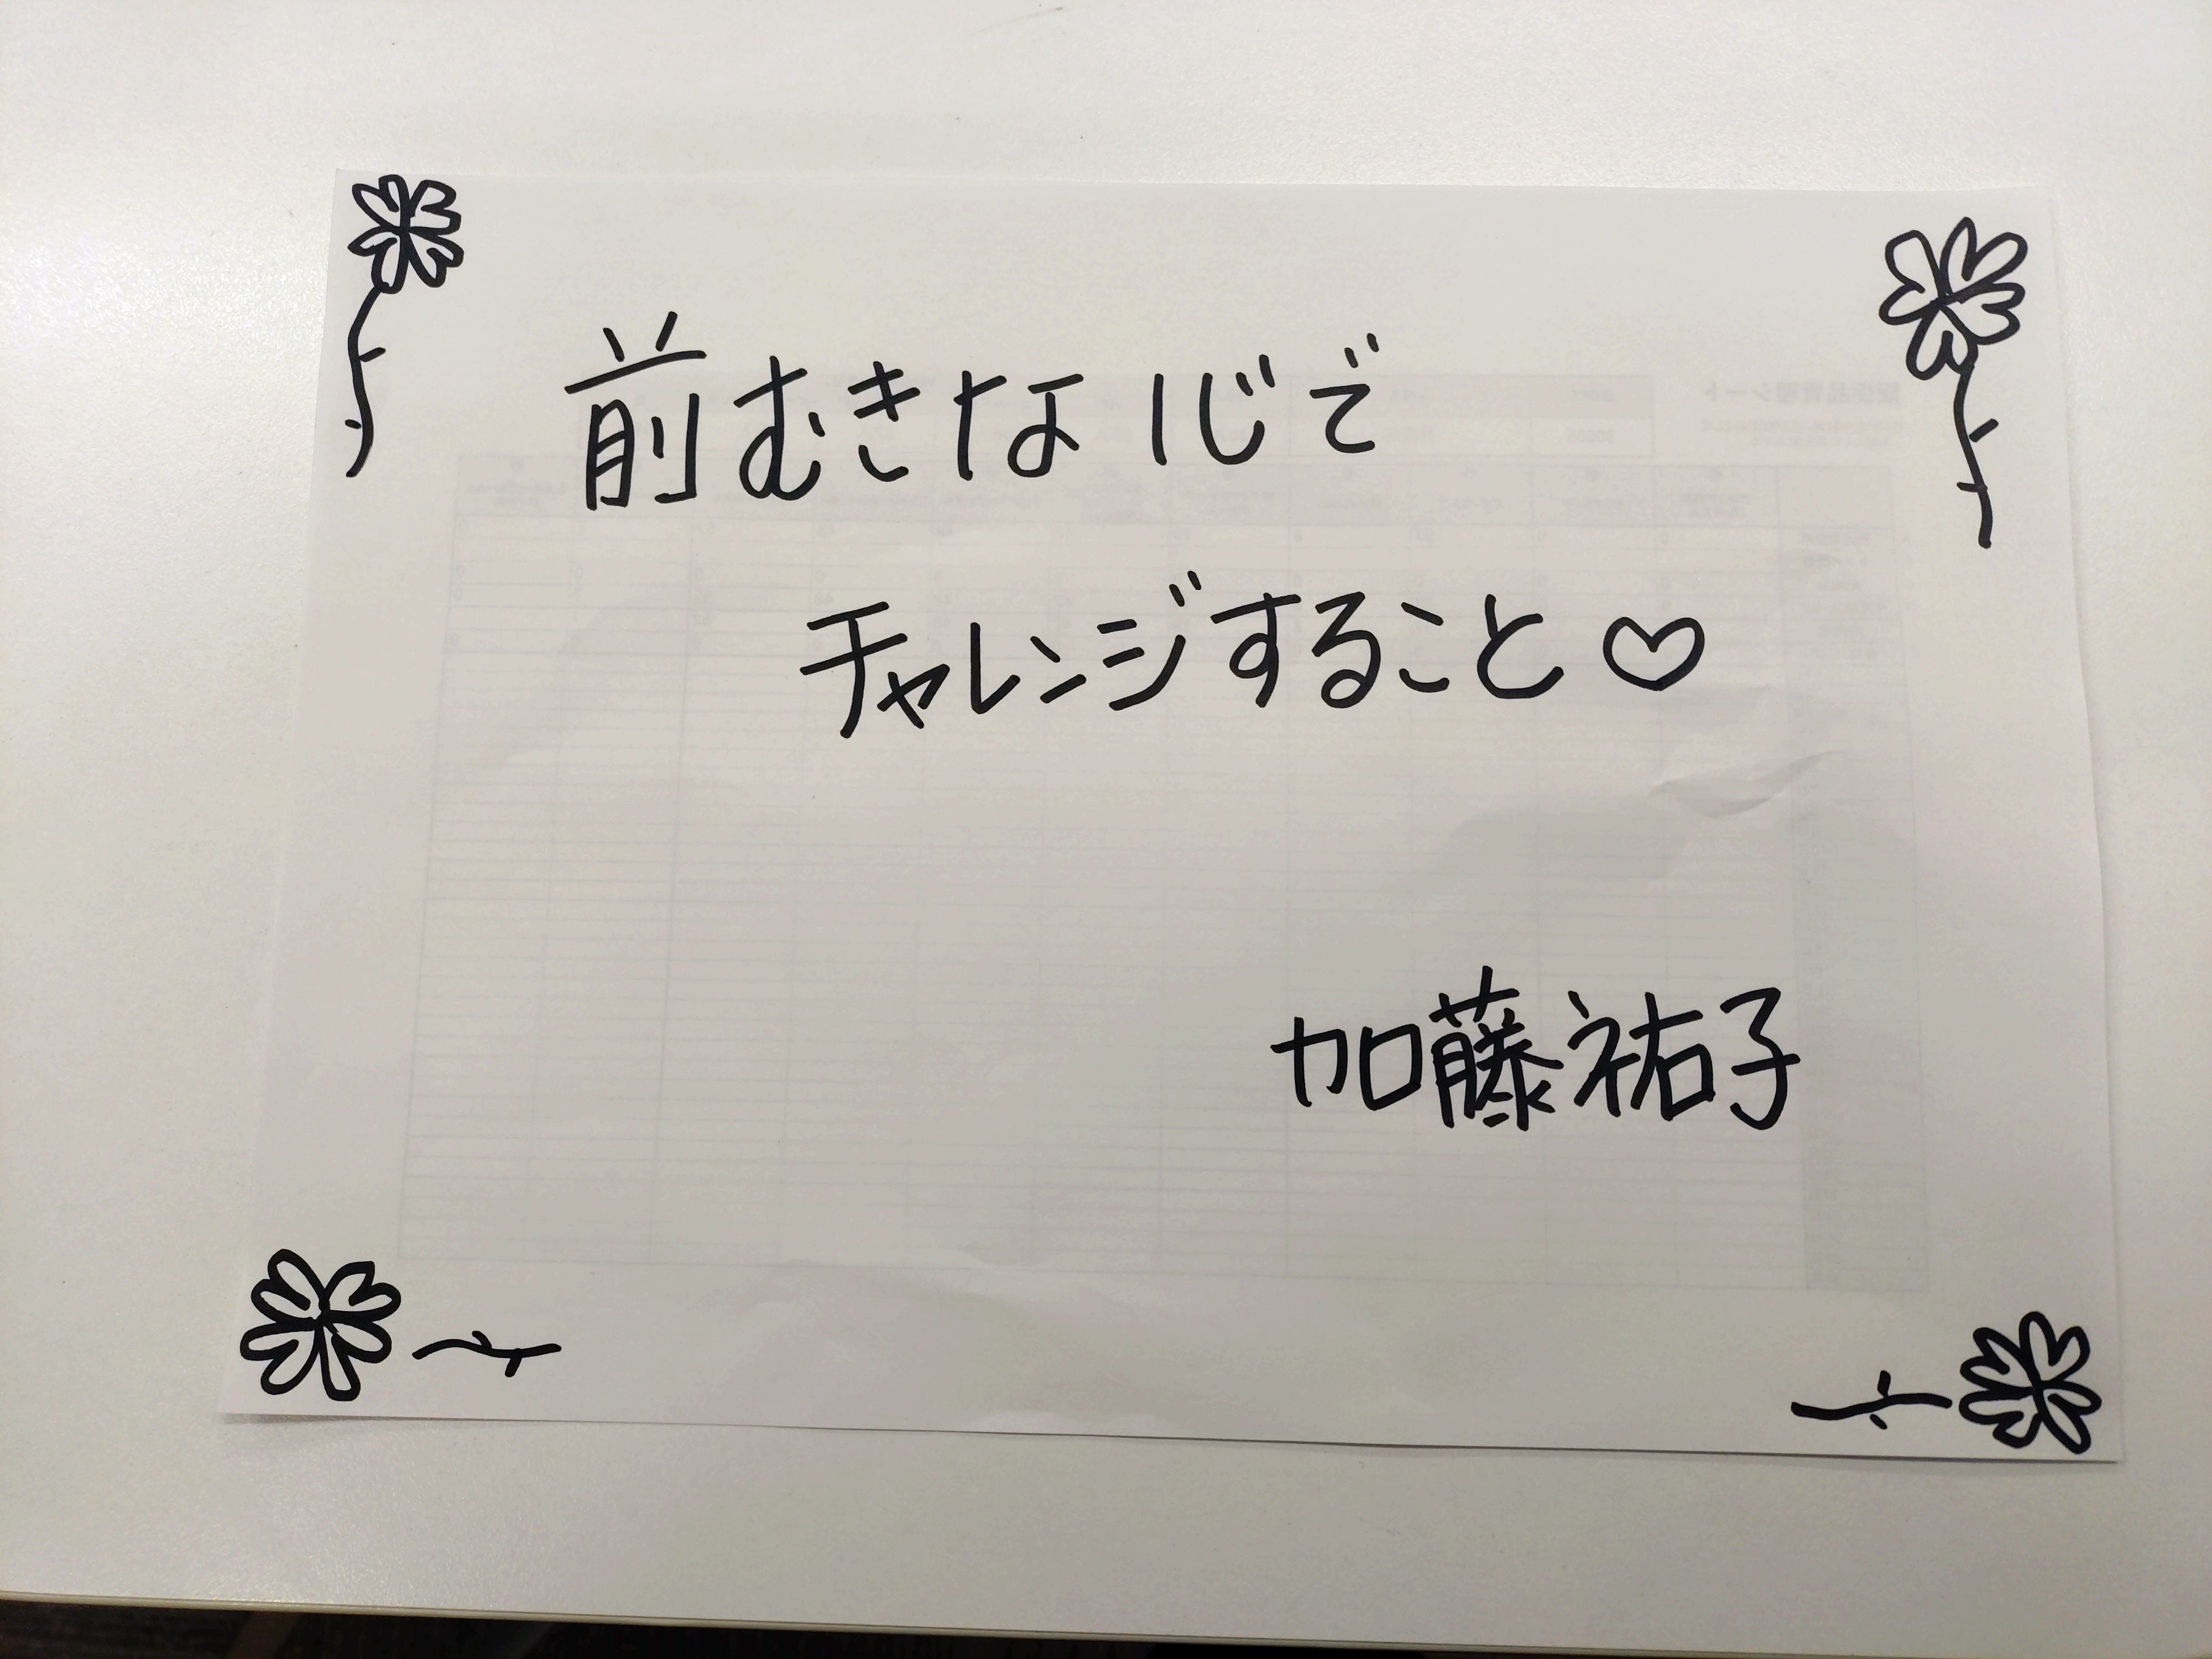 前むきな心で
チャレンジすること♡
加藤祐子